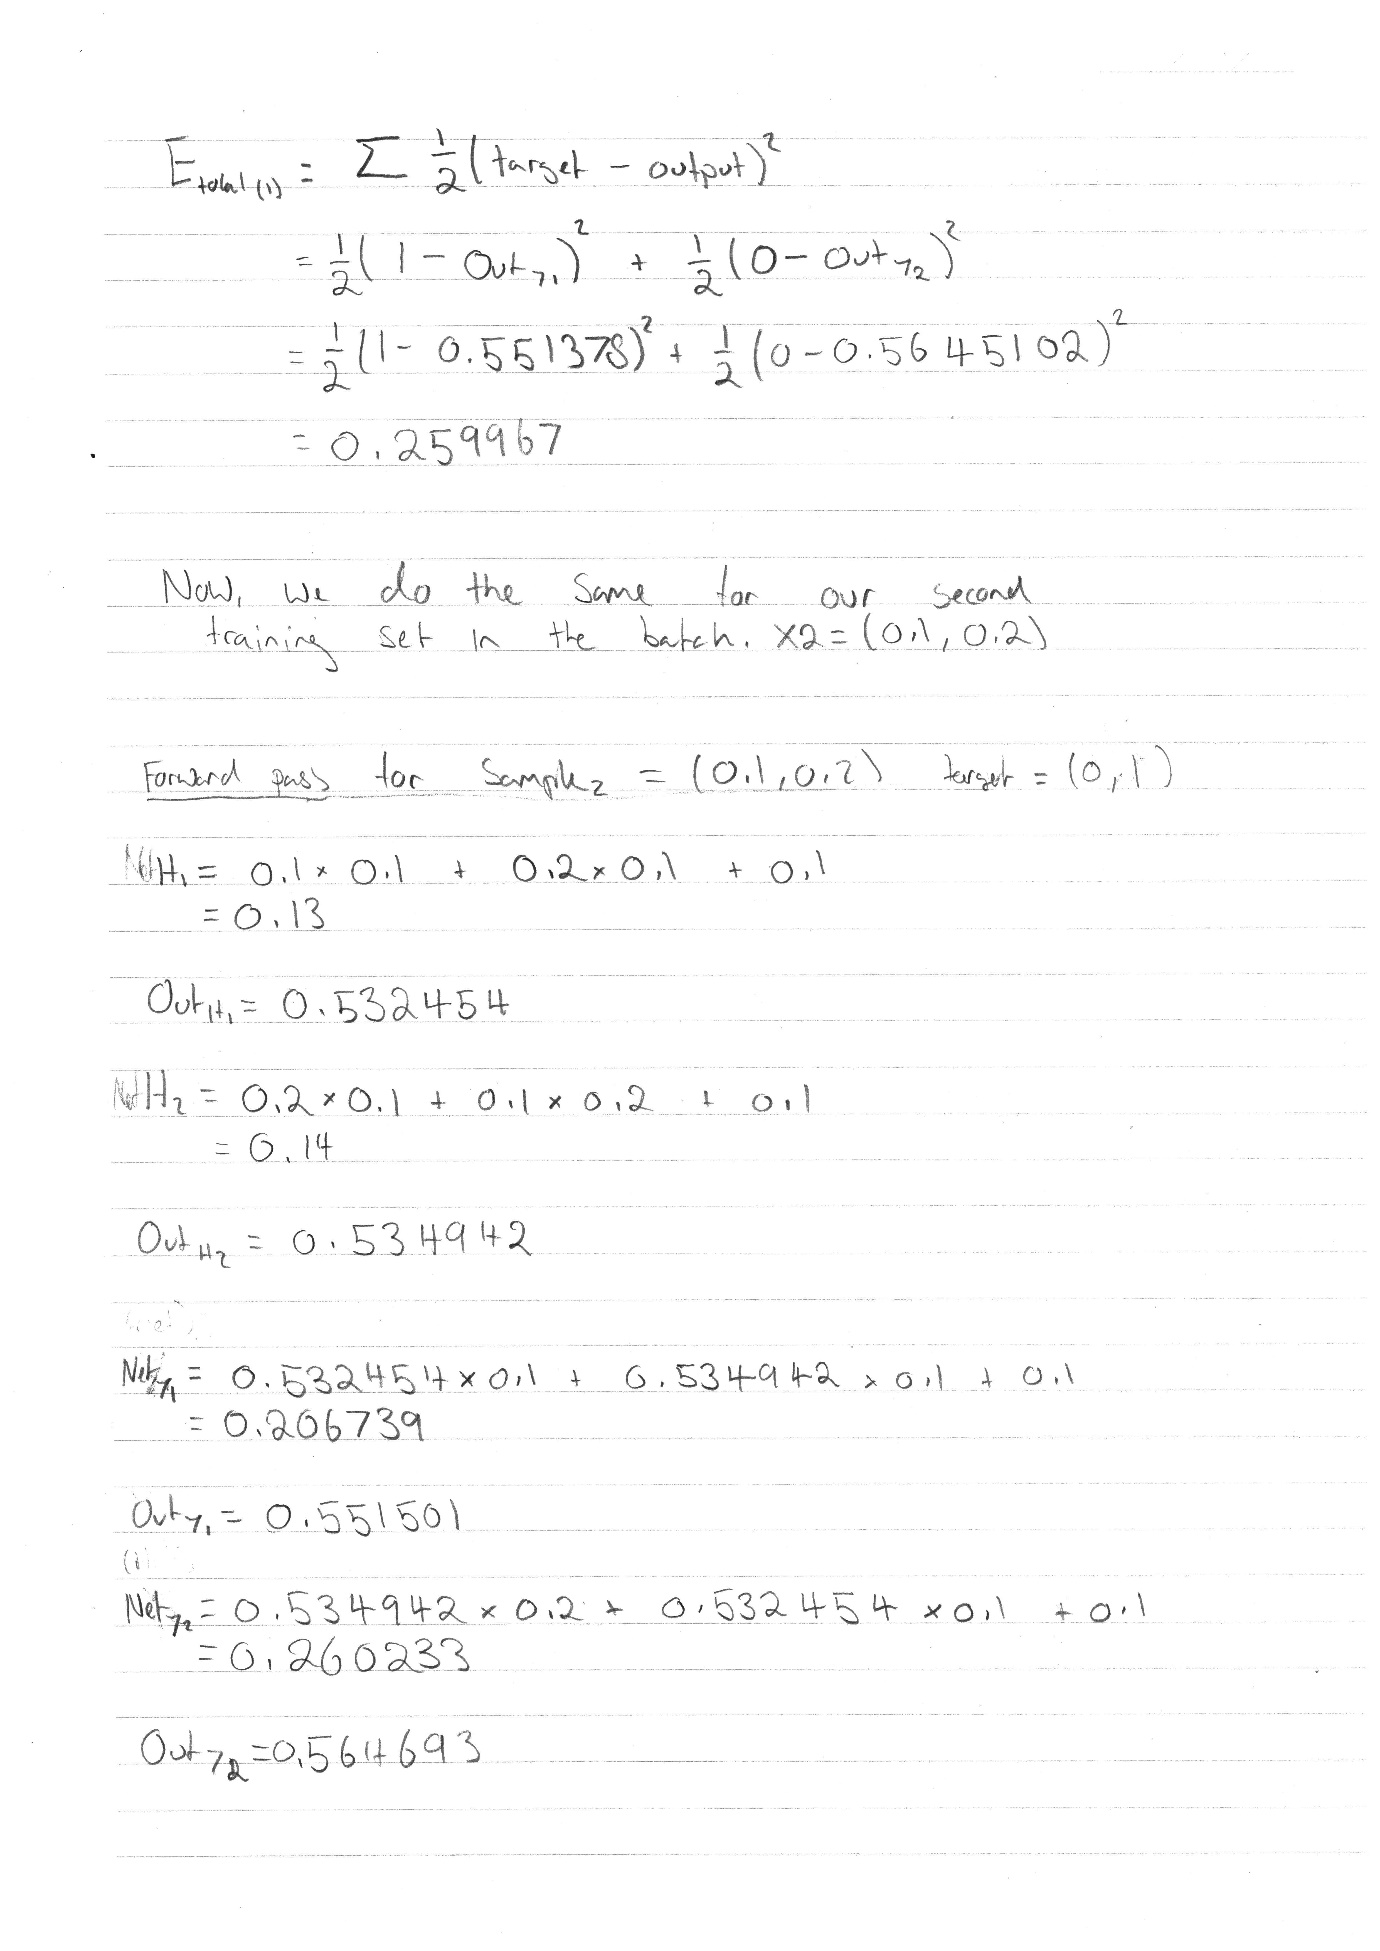 E_total(1) = Σ ½(target - output)²
= ½(1 - Out_y₁)² + ½(0 - Out_y₂)²
= ½(1 - 0.551378)² + ½(0 - 0.5645102)²
= 0.259967
Now, we do the same for our second
training set in the batch. X2 = (0.1, 0.2)
Forward pass for Sample₂ = (0.1, 0.2) target = (0, 1)
NetH₁ = 0.1 × 0.1 + 0.2 × 0.1 + 0.1
= 0.13
Out_H₁ = 0.532454
NetH₂ = 0.2 × 0.1 + 0.1 × 0.2 + 0.1
= 0.14
Out_H₂ = 0.534942
Net_y₁ = 0.532454 × 0.1 + 0.534942 × 0.1 + 0.1
= 0.206739
Out_y₁ = 0.551501
Net_y₂ = 0.534942 × 0.2 + 0.532454 × 0.1 + 0.1
= 0.260233
Out_y₂ = 0.564693